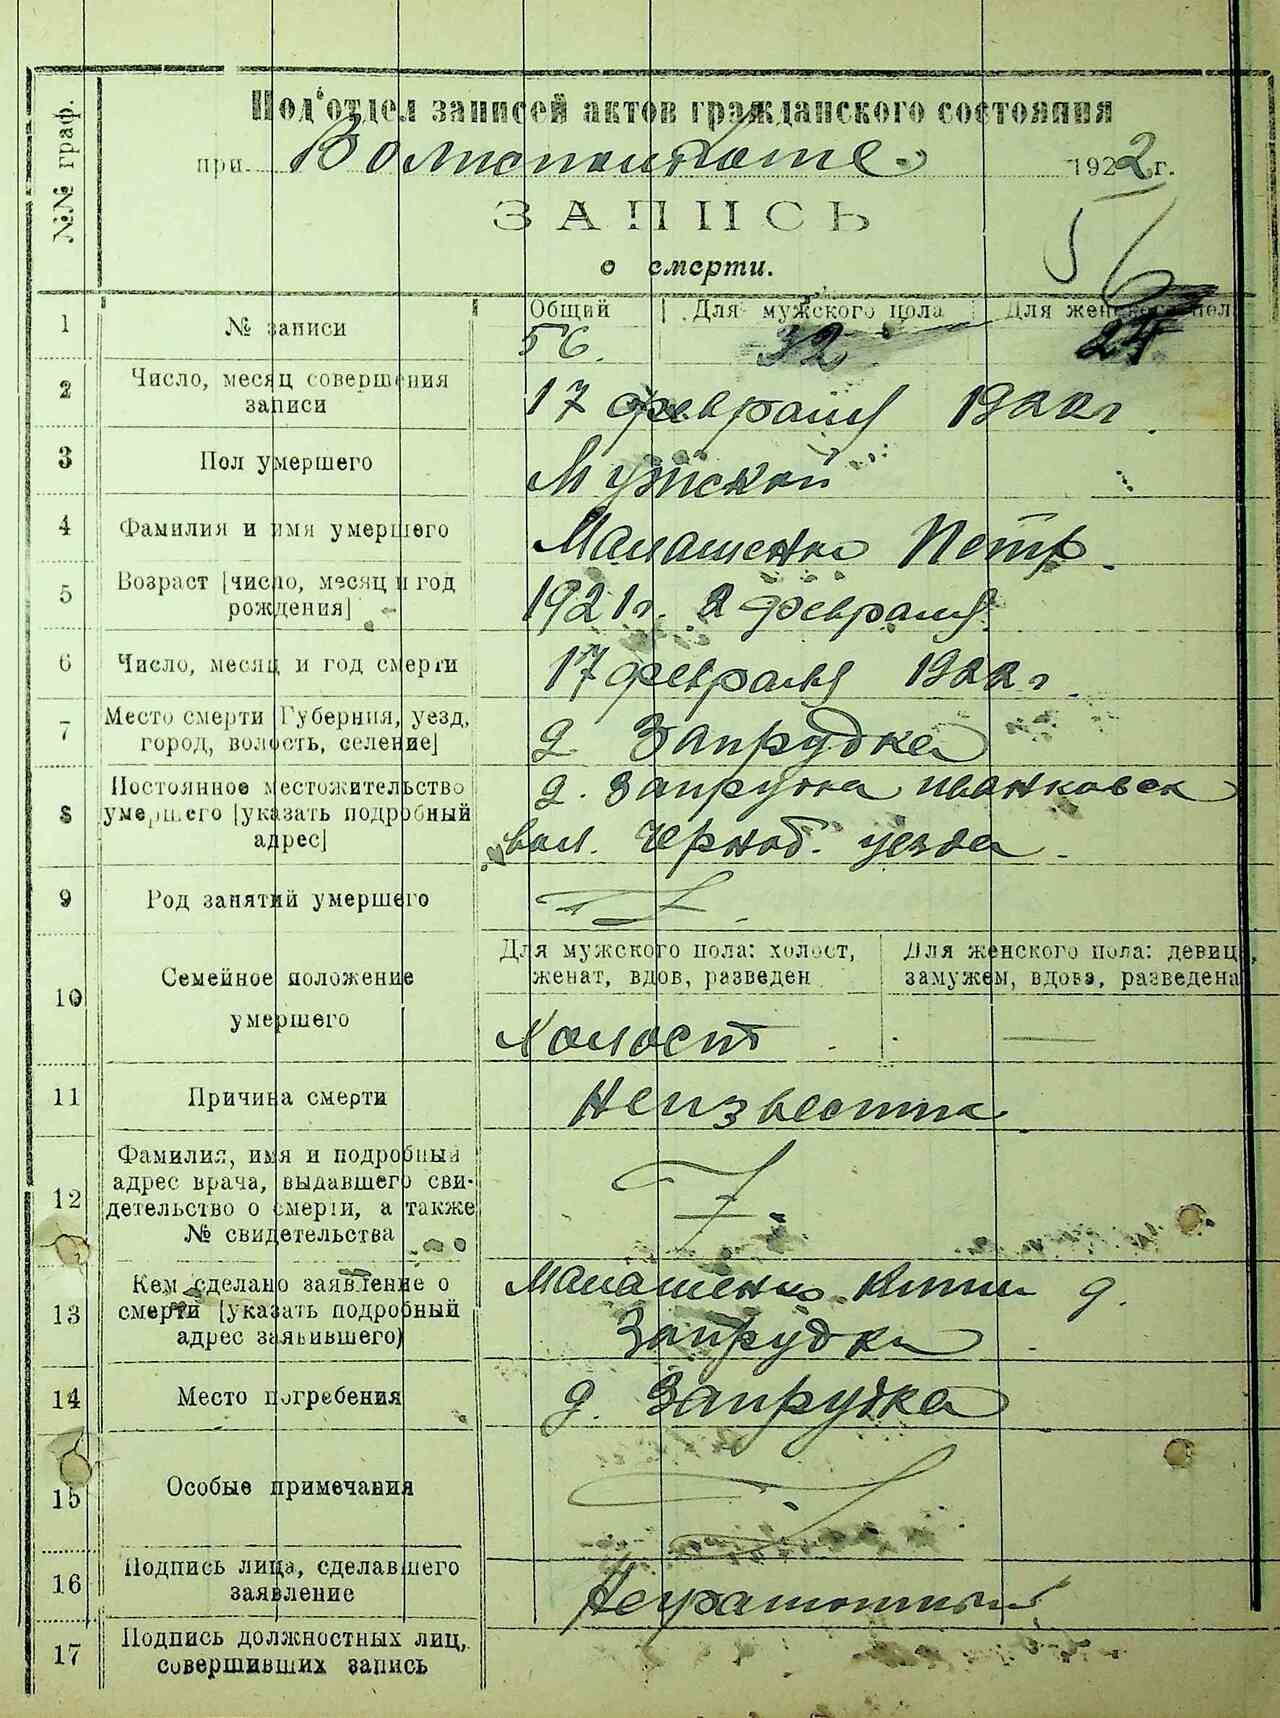 №№ граф.
Под'отдел записей актов гражданского состояния
при Волисполкоме 1922 г.
ЗАПИСЬ
о смерти.
56
1 № записи Общий Для мужского пола Для женского пол
56. 32 24
2 Число, месяц совершения
записи
17 февраля 1922 г.
3 Пол умершего Мужской
4 Фамилия и имя умершего Малашенко Петр.
5 Возраст [число, месяц и год
рождения]
1921 г. 2 февраля
6 Число, месяц и год смерти 17 февраля 1922 г.
7 Место смерти [Губерния, уезд,
город, волость, селение]
д. Запрудка
8 Постоянное местожительство
умершего [указать подробный
адрес]
д. Запрудка иванковск
вол. Черноб. уезда.
9 Род занятий умершего
10 Семейное положение
умершего
Для мужского пола: холост,
женат, вдов, разведен
Для женского пола: девица,
замужем, вдова, разведена
Холост —
11 Причина смерти Неизвестна
12 Фамилия, имя и подробный
адрес врача, выдавшего сви-
детельство о смерти, а также
№ свидетельства
13 Кем сделано заявление о
смерти [указать подробный
адрес заявившего)
Малашенко д.
Запрудка
14 Место погребения д. Запрудка
15 Особые примечания
16 Подпись лица, сделавшего
заявление
Неграмотный
17 Подпись должностных лиц,
совершивших запись